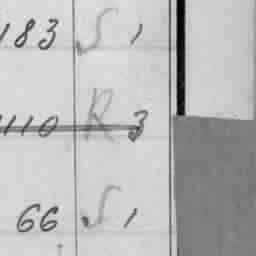 183 S 1
110 R 3
66 S 1